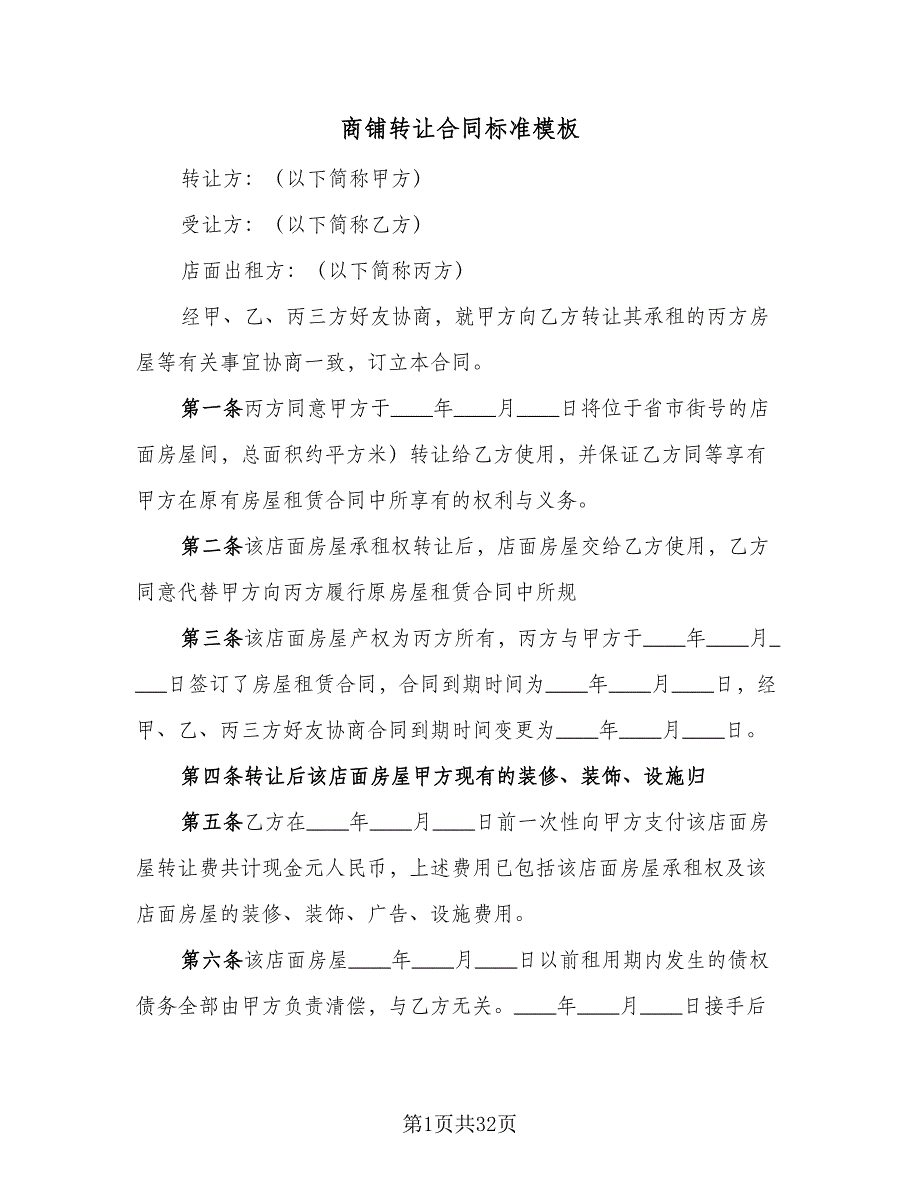 商铺转让合同标准模板
转让方：（以下简称甲方）
受让方：（以下简称乙方）
店面出租方：（以下简称丙方）
经甲、乙、丙三方好友协商，就甲方向乙方转让其承租的丙方房
屋等有关事宜协商一致，订立本合同。
第一条丙方同意甲方于____年____月____日将位于省市街号的店
面房屋间，总面积约平方米）转让给乙方使用，并保证乙方同等享有
甲方在原有房屋租赁合同中所享有的权利与义务。
第二条该店面房屋承租权转让后，店面房屋交给乙方使用，乙方
同意代替甲方向丙方履行原房屋租赁合同中所规
第三条该店面房屋产权为丙方所有，丙方与甲方于____年____月_
___日签订了房屋租赁合同，合同到期时间为____年____月____日，经
甲、乙、丙三方好友协商合同到期时间变更为____年____月____日。
第四条转让后该店面房屋甲方现有的装修、装饰、设施归
第五条乙方在____年____月____日前一次性向甲方支付该店面房
屋转让费共计现金元人民币，上述费用已包括该店面房屋承租权及该
店面房屋的装修、装饰、广告、设施费用。
第六条该店面房屋____年____月____日以前租用期内发生的债权
债务全部由甲方负责清偿，与乙方无关。____年____月____日接手后
第1页共32页